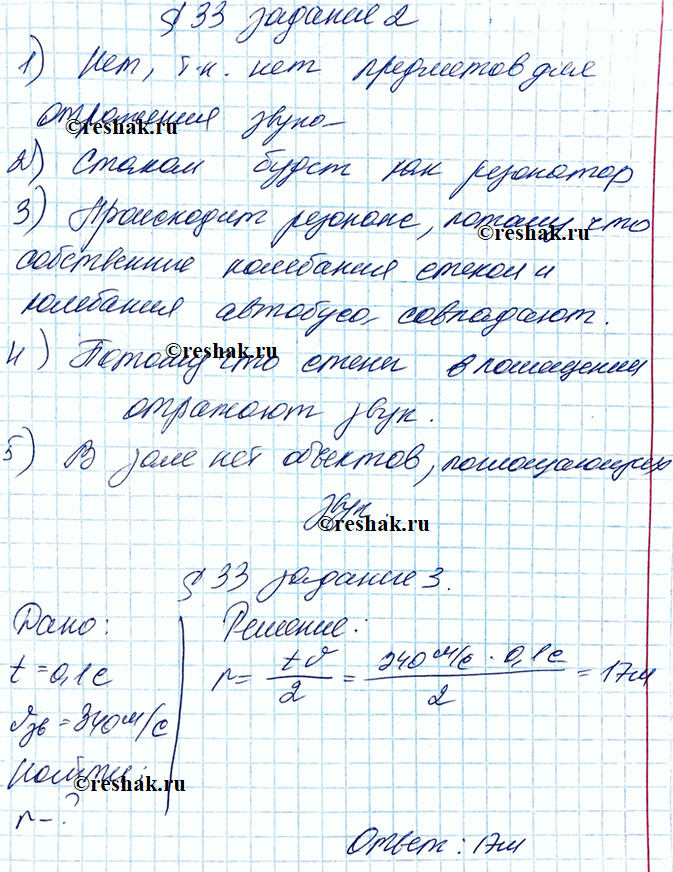 § 33 задание 2
1) Нет, т.к. нет предметов для
отражения звука
©reshak.ru
2) Стакан будет как резонатор
3) Происходит резонанс, потому что
©reshak.ru
собственные колебания стекол и
колебания автобуса совпадают.
©reshak.ru
4) Потому что стены в помещении
отражают звук.
5) В зале нет объектов, поглощающих
звук.
©reshak.ru
§ 33 задание 3.
Дано: Решение:
t = 0,1 с r = tϑ/2 = 340 м/с · 0,1 с / 2 = 17м
ϑзв = 340 м/с
Найти:
©reshak.ru
r - ?
Ответ: 17м